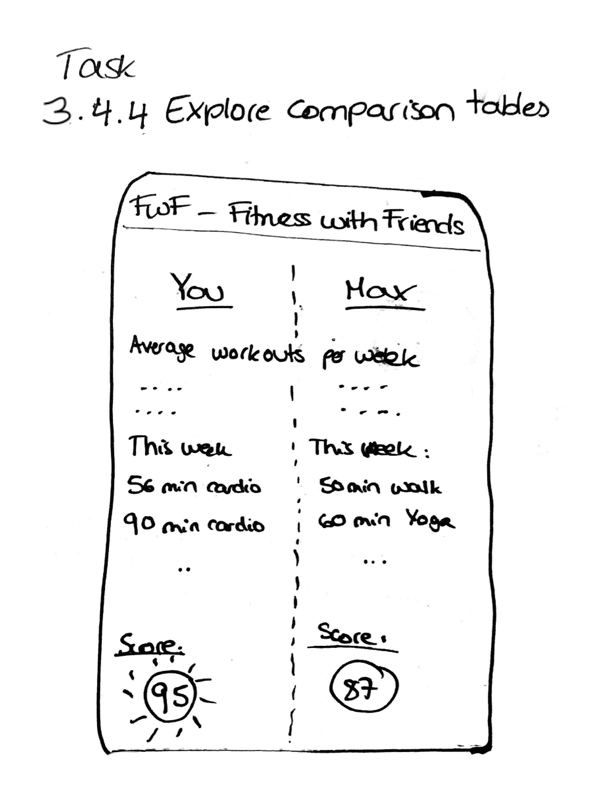 Task
3.4.4 Explore comparison tables
FWF - Fitness with Friends
You Max
Average workouts per week
.... ....
.... ....
This week This week:
56 min cardio 50 min walk
90 min cardio 60 min Yoga
.. ...
Score: Score:
95 87